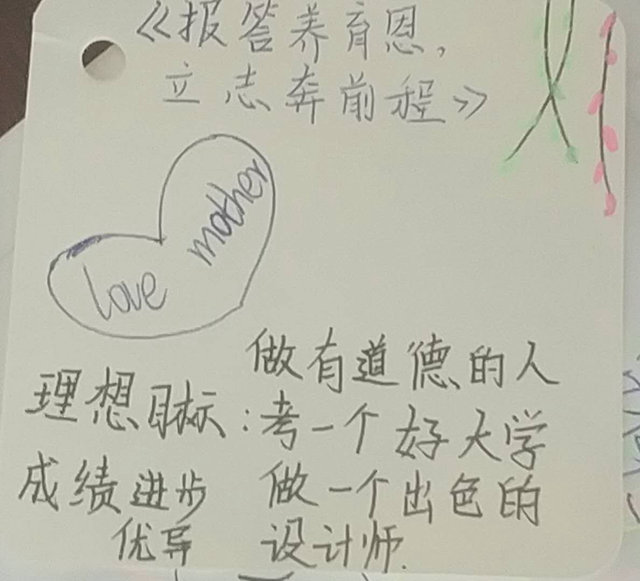 《报答养育恩,
立志奔前程》
love mother
做有道德的人
理想目标:考一个好大学
成绩进步 做一个出色的
优异 设计师.